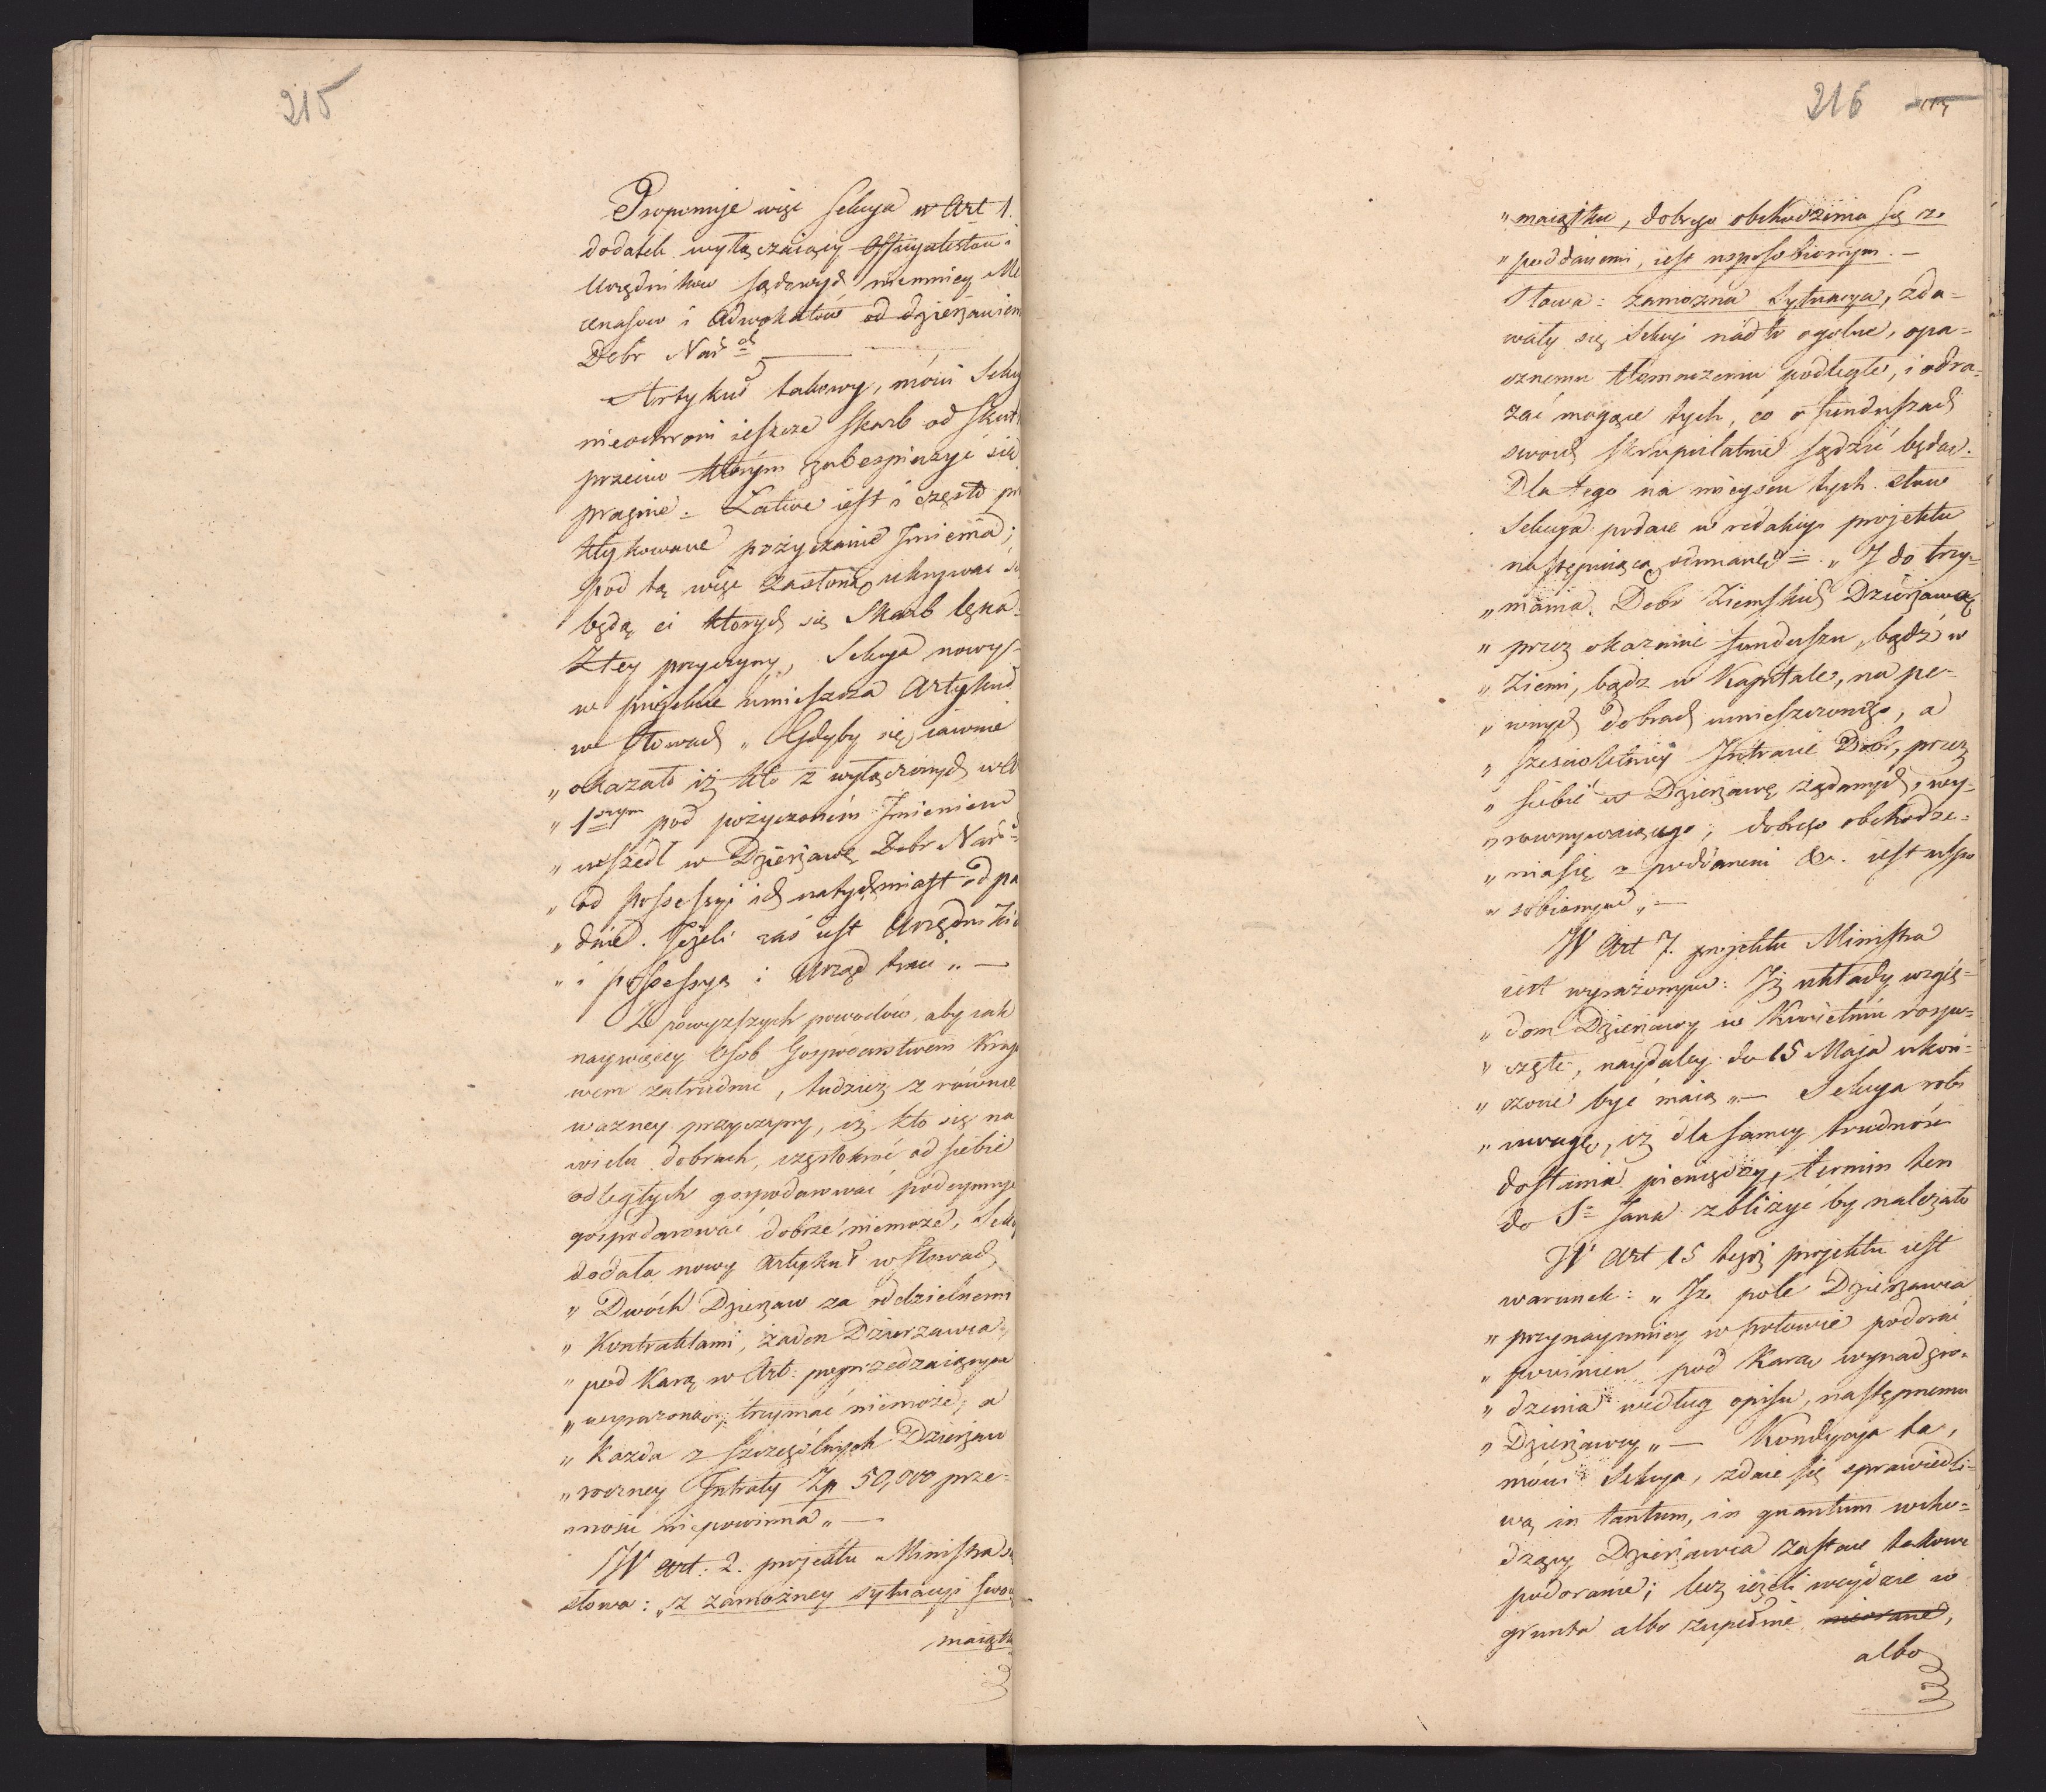 215
Proponuje więc Sekcya w Art 1.
dodatek wyłączaiący Officyalistów i
Urzędników sądowych niemniey Me
cenasow i Adwokatów od dzierżawien
Dobr Nar.ch
Artykuł takowy, mówi Sekcy
nieochroni ieszcze Skarb od skut
przeciw którym zabespieczyć się
pragnie. Łatwe iest i często pra
ktykowane pożyczanie Imienia;
pod tą więc zasłoną ukrywać się
będą ci których się Skarb lęka.
Z tey przyczyny, Sekcya nowy
w projekcie umieszcza Artykuł
w słowach „Gdyby się iawnie
„okazało iż kto z wyłączonych w Art
„1szym pod pożyczonem Imieniem
„wszedł w Dzierżawę Dobr Nar.ch
„od Possessyi ich natychmiast odpa
„dnie. Jeżeli zaś iest Urzędnikie
„i possessyą i Urząd traci„ —
Z powyższych powodów, aby iak
naywięcey Osob Gospodarstwem Kraio
wem zatrudnić, tudzież z równie
wazney przyczyny, iż kto się na
wielu dobrach, częstokroć od siebie
odległych gospodarować podeymuje
gospodarować dobrze niemoże, Sekcy
dodała nowy Artykuł w słowach
„Dwóch Dzierżaw za oddzielnemi
„Kontraktami, żaden Dzierżawca,
„pod Karą w Art: poprzedzaiącym
„wyrażoną, trzymać niemoże, a
„Każda z szczególnych Dzierżaw
„roczney Intraty Zp 50,000 prze=
„nosić niepowinna„ —
W Art: 2. projektu Ministra są
słowa: „z zamożney sytuacyi swoi
maiątku
216
„maiątku, dobrego obchodzenia się z
„poddanemi, iest usposobionym. —
Słowa: zamożna Sytuacya, zda=
wały się Sekcyi nadto ogólne, opa=
cznemu tłomaczeniu podległe, i odra=
zać mogące tych, co o funduszach
swoich skrupulatnie sądzić będą.
Dla tego na mieyscu tych słow
Sekcya podaie w redakcyi projektu
następuiącą odmianę = „I do trzy=
„mania Dobr Ziemskich Dzierżawą
„przez okazanie funduszu, bądź w
„Ziemi, bądz w Kapitale, na pe=
„wnych dobrach umieszczonego, a
„sześcioletniey Intracie Dobr, przez
„siebie w Dzierżawę żądanych, wy=
„rownywaiącego; dobrego obchodze=
„nia się z poddanemi &c. iest uspo
„sobionym„ —
W Art 7. projektu Ministra
iest wyrażonym: Iż układy wzglę=
„dem Dzierżawy w Kwietniu rozpo=
„częte, naydaley do 15 Maja ukoń=
„czone być maią„ — Sekcya robi
„uwagę, iż dla samey trudności
dostania pieniędzy, termin ten
do S= Jana zbliżyć by należało
W Art 15 tegoż projektu iest
warunek: „Iż pole Dzierżawca
„przynaymniey w połowie podorać
„powinien pod Karą wynadgro=
„dzenia według opisu, następnemu
„Dzierżawcy„ — Kondycya ta,
mówi Sekcya, zdaie się sprawiedli=
wą in tantum, in quantum wcho=
dzący Dzierżawca zastaie takowe
podoranie; lecz ieżeli weydzie w
grunta albo zupełnie nieorane,
albo